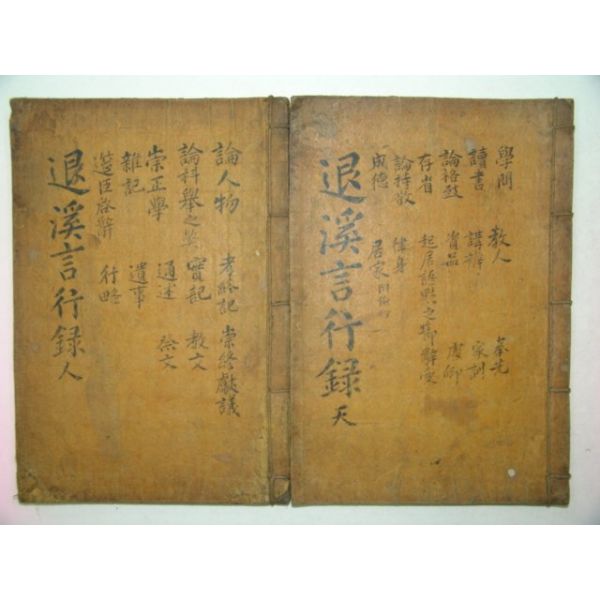 學問 教人 奉先
讀書 講辨 家訓
論格致 資品 處鄕
存省 起居語默之節 辭受
論持敬 律身
成德 居家
退溪言行錄 天
論人物 考終記 崇終獻議
論科擧之弊 實記 敎文
崇正學 通述 祭文
雜記 遺事
筵臣啓辭 行略
退溪言行錄 人